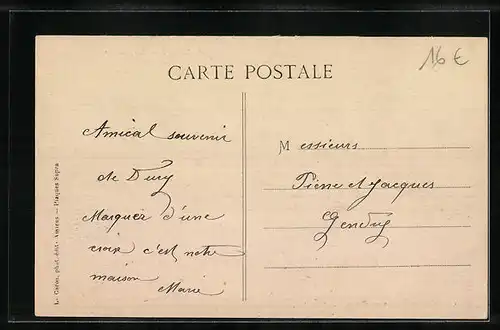 16 €
CARTE POSTALE
Amical souvenir
de Dury
Marquez d'une
croix c'est notre
maison
Marie
Messieurs
Pierre et Jacques
phot.-édit. Amiens — Plaques Sigma